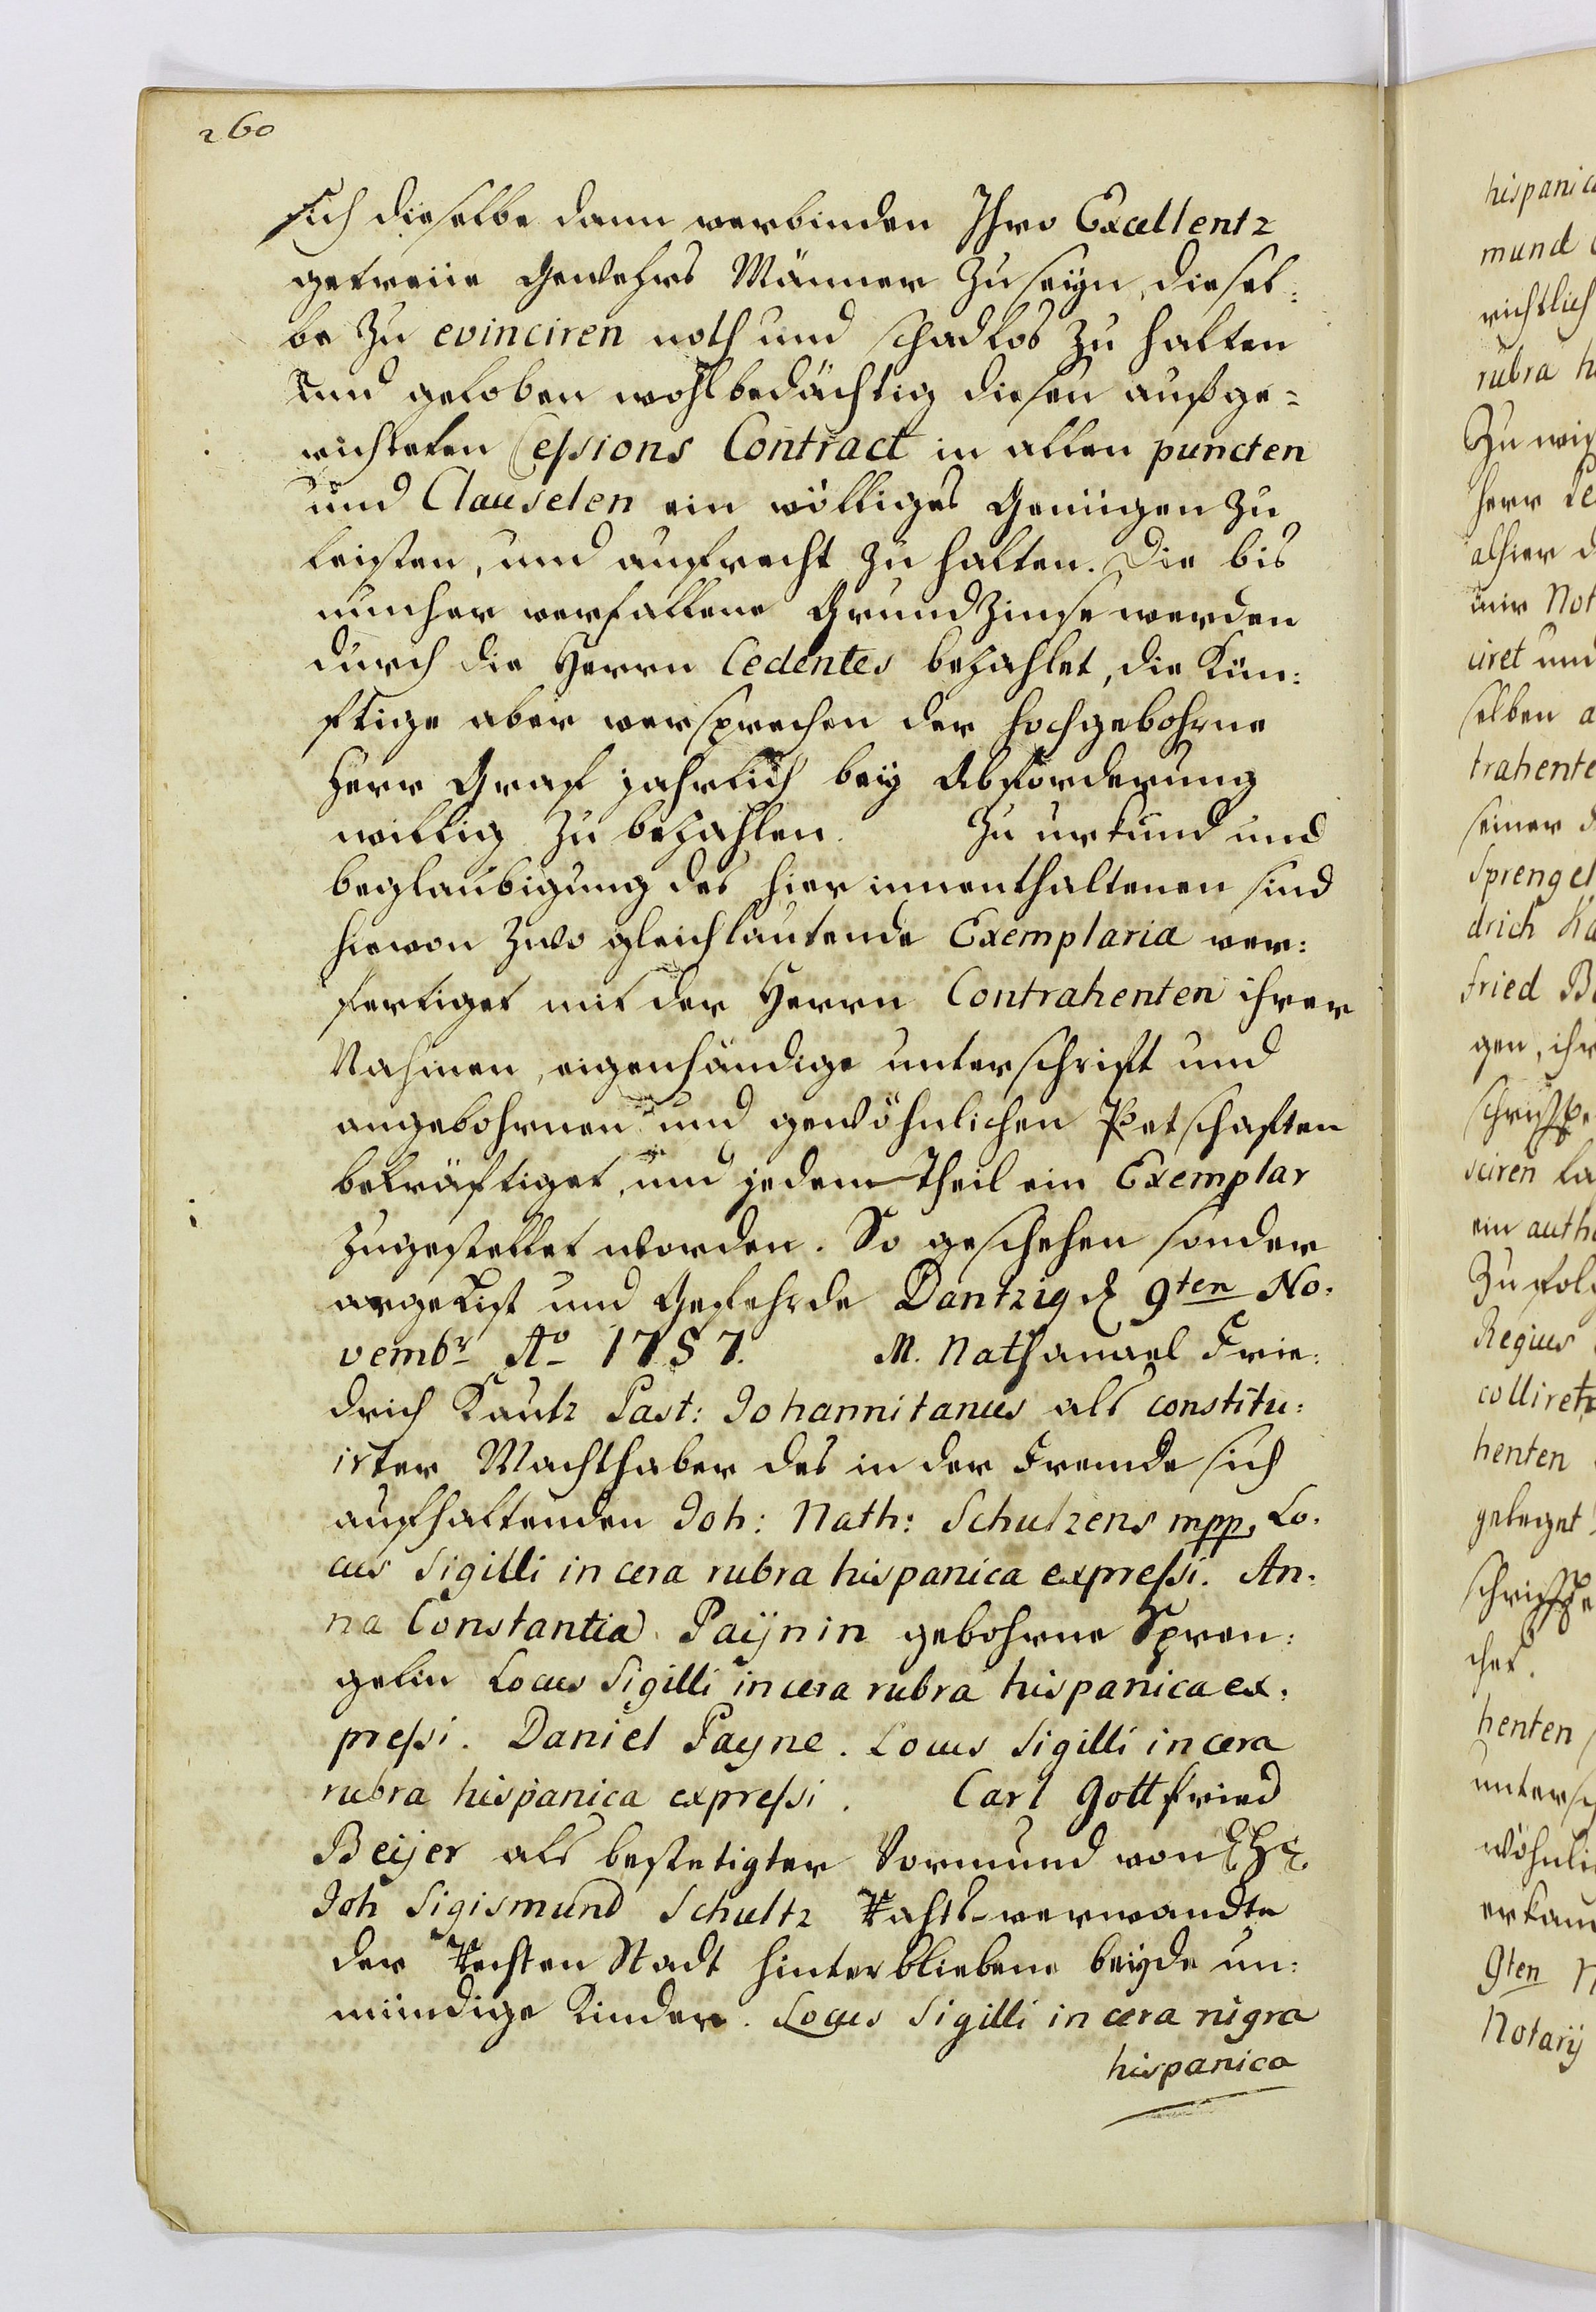 260
sich dieselbe dann verbinden Ihro Excellentz
getreüe Gewehrs Männer zu seÿn, diesel:
be zu evinciren noth und schadlos zu halten
Und geloben wohlbedächtig diesen aufge=
richteten Cessions Contract in allen puncten
und Clauselen ein völliges Genügen zu
leisten, und aufrecht zu halten. Die bis
nunher verfallene Grundzinse werden
durch die Herrn Cedentes bezahlet, die Kün:
ftige aber versprechen der hochgebohrne
Herr Graf jahrlich beÿ Abforderung
willig zu bezahlen. Zu urkund und
beglaubigung des hier innenthaltenen sind
hievon zwo gleichlautende Exemplaria ver:
fertiget mit der Herrn Contrahenten ihrer
Nahmen, eigenhändige unterschrift und
angebohrnen und gewöhnlichen Petschaften
bekräftiget, und jedem Theil ein Exemplar
zugestellet worden. So geschehen sonder
argelist und Gefehrde Dantzig d 9ten No:
vembr Ao 1757. M. Nathanael Frie:
drich Kautz Past: Johannitanus als constitu:
irter Machthaber des in der Fremde sich
aufhaltenden Joh: Nath: Schultzens mpp, Lo:
cus Sigilli in cera rubra hispanica expressi. An:
na Constantia Paÿnin gebohrne Spren:
gelin Locus Sigilli in cera rubra hispanica ex:
pressi. Daniel Payne. Locus Sigilli in cera
rubra hispanica expressi. Carl Gottfried
Beÿer als bestetigter Vormund von
Joh Sigismund Schultz Rahts-verwandte
der Rechten Stadt hinterbliebene beÿde un:
mündige Kinder. Locus Sigilli in cera nigra
hispanica
hispanica
mund
richtlich
rubra
Zu
Herr
alhier
mir Not
ciret und
selben
trahente
seiner
Sprengel
drich Ka
fried Be
gen, ihr
sciren
ein auth
Zu fol
Regius
henten
geleget
henten
untersch
wöhnli
9ten
Notarÿ